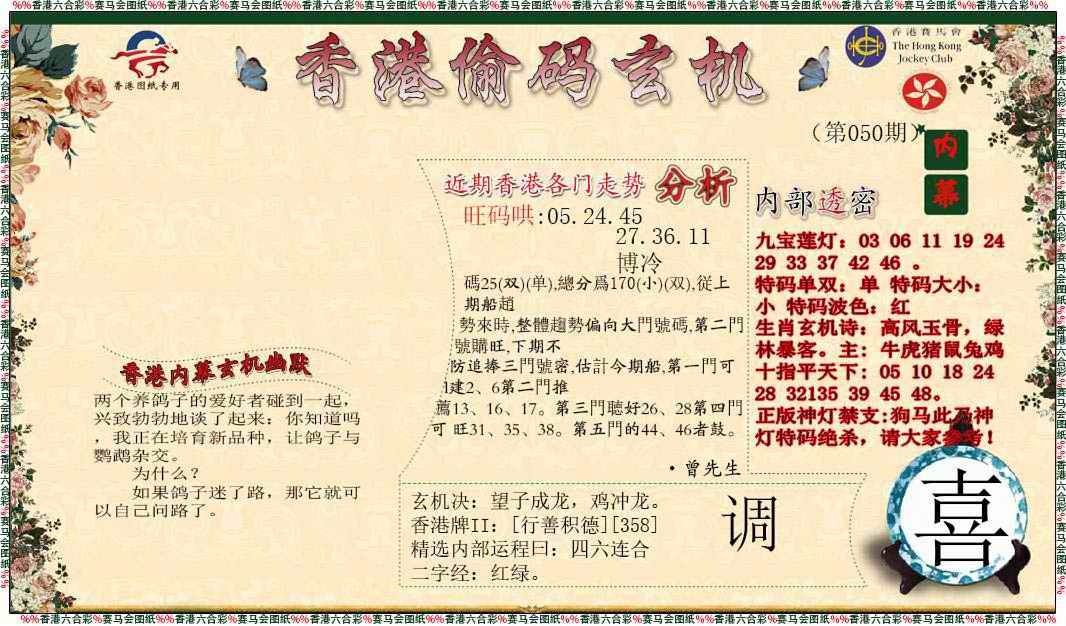 %%香港六合彩%赛马会图纸%%香港六合彩%赛马会图纸%%香港六合彩%赛马会图纸%%香港六合彩%赛马会图纸%%香港六合彩%赛马会图纸%%香港六合彩%赛马会图纸%%香港六合彩%%
香港图纸专用
香港偷码玄机
香港賽馬會
The Hong Kong
Jockey Club
(第050期)
内幕
近期香港各门走势 分析
旺码哄:05.24.45
27.36.11
博冷
碼25(双)(单),總分爲170(小)(双),從上
期船趙
勢來時,整體趨勢偏向大門號碼,第二門
號購旺,下期不
防追捧三門號密,估計今期船,第一門可
建2、6第二門推
薦13、16、17。第三門聽好26、28第四門
可 旺31、35、38。第五門的44、46者鼓。
·曾先生
内部透密
九宝莲灯：03 06 11 19 24
29 33 37 42 46 。
特码单双：单 特码大小：
小 特码波色：红
生肖玄机诗：高风玉骨，绿
林暴客。主：牛虎猪鼠兔鸡
十指平天下：05 10 18 24
28 32135 39 45 48。
正版神灯禁支:狗马此乃神
灯特码绝杀，请大家参考！
香港内幕玄机幽默
两个养鸽子的爱好者碰到一起，
兴致勃勃地谈了起来：你知道吗
，我正在培育新品种，让鸽子与
鹦鹉杂交。
为什么？
如果鸽子迷了路，那它就可
以自己问路了。
玄机决：望子成龙，鸡冲龙。
香港牌II：[行善积德][358]
精选内部运程曰：四六连合
二字经：红绿。
调
喜
%%香港六合彩%赛马会图纸%%香港六合彩%赛马会图纸%%香港六合彩%赛马会图纸%%香港六合彩%赛马会图纸%%香港六合彩%赛马会图纸%%香港六合彩%赛马会图纸%%香港六合彩%%